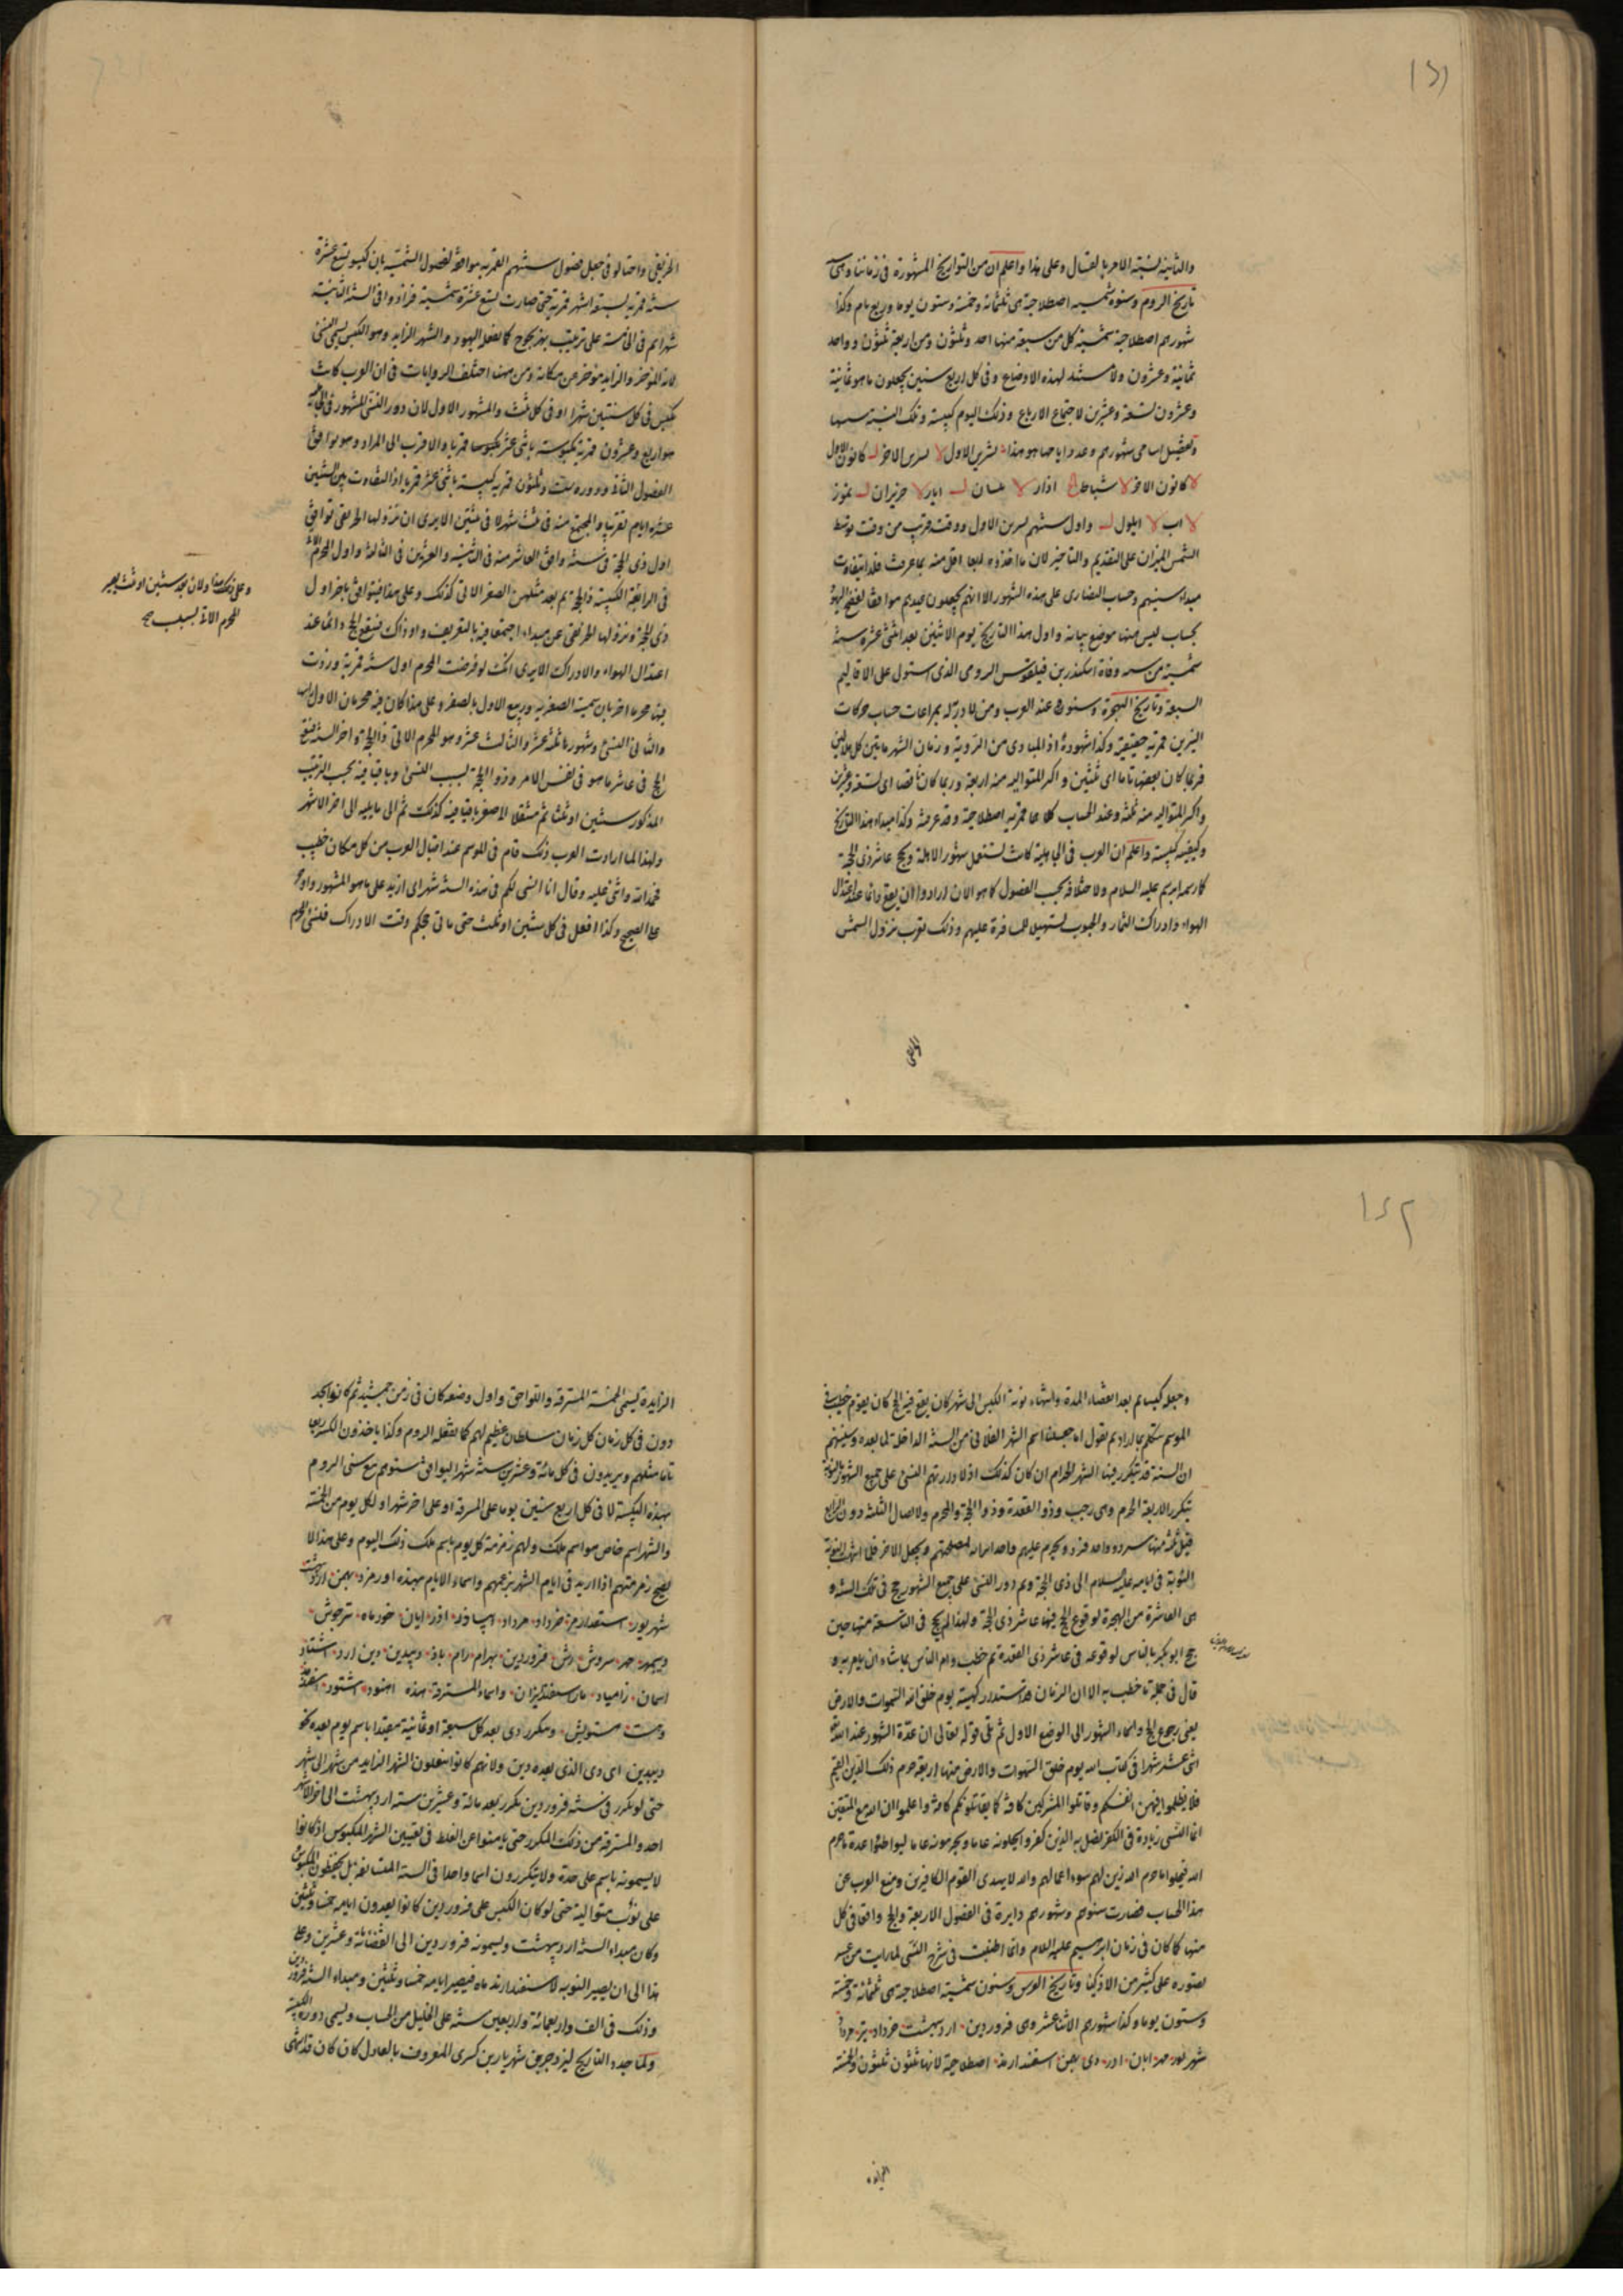 والثانية نسبته الامر بالقتال وعلى هذا واعلم ان من التواريخ المشهورة فى زماننا وهى
تاريخ الروم وسنوه شمسية اصطلاحية هى ثلثمائة وخمسة وستون يوما وربع تام وكذا
شهورهم اصطلاحية شمسية كل من سبعة منها احد وثلثون ومن اربعة ثلثون وواحد
ثمانية وعشرون ولا مستند لهذه الاوضاع وفى كل اربع سنين يجعلون ما هو ثمانية
وعشرون تسعة وعشرين لاجتماع الارباع وذلك اليوم كبيسة وتلك السنة
وتفصيل اسامى شهورهم وعدد ايامها هو هذا تشرين الاول لا تشرين الاخر ل كانون الاول
لا كانون الاخر لا شباط كح اذار لا نيسان ل ايار لا حزيران ل تموز
لا اب لا ايلول ل واول سنتهم تشرين الاول ووقته قريب من وقت توسط
الشمس الميزان على التقديم والتاخير لان ما اخذوه ربعا اقل منه بما عرفت فلذا يتفاوت
مبداء سنينهم وحساب النصارى على هذه الشهور الا انهم يجعلون عيدهم موافقا لفصح اليهود
بحساب ليس هنا موضع بيانه واول هذا التاريخ يوم الاثنين بعد اثنى عشرة سنة
شمسية من وفاة اسكندر بن فيلقوس الرومى الذى استولى على الاقاليم
السبعة وتاريخ الهجرة وسنوه عند العرب ومن لا دربة له بمراعات حساب حركات
النيرين قمرية حقيقية وكذا شهوره اذ المبادى من الروية وزمان الشهر ما بين كل هلالين
فربما كان بعضها تاما اى ثلثين واكثر المتواليه منه اربعة وربما كان ناقصا اى تسعة وعشرين
واكثر المتواليه منه ثلثة وعند الحساب كلاهما قمرية اصطلاحية وقد عرفته وكذا مبداء هذا التاريخ
وكيفية كبيسته واعلم ان العرب فى الجاهلية كانت تستعمل شهور الاهلة ويحج عاشر ذى الحجة
كما رسمه ابرهيم عليه السلام ولاختلافه بحسب الفصول كما هو الان ارادوا ان يقع دائما عند اعتدال
الهواء وادراك الثمار والحبوب لتسهيل المسافرة عليهم وذلك بقرب نزول الشمس
الخريفى
الخريفى واحتالوا فى جعل فصول سنتهم القمرية موافقة لفصول الشمسية بان كبسوا تسع عشرة
سنة قمرية بسبعة اشهر قمرية حتى صارت تسع عشرة شمسية فزادوا فى السنة الثانية
شهرا ثم فى الخامسة على ترتيب بهزيجوح كما يفعل اليهود والشهر الزايد وهو الكبس يسمى النسئ
لانه المؤخر والزايد مؤخر عن مكانه ومن ههنا اختلف الروايات فى ان العرب كانت
تكبس فى كل سنتين شهرا او فى كل ثلث والمشهور الاول لان دور النسئ المشهور فى الجاهلية
هو اربع وعشرون قمرية مكبوسة باثنى عشر مكبوسا قمريا والاقرب الى المراد وهو توافق
الفصول الثانى ودوره ست وثلثون قمرية كبيسته باثنى عشر قمريا اذ التفاوت بين السنتين
عشرة ايام تقريبا والمجتمع منه فى ثلث شهر لا فى سنتين الا يرى ان نزولها الخريفى لو وافق
اول ذى الحجة فى سنة وافق العاشر منه فى الثانية والعشرين فى الثالثة واول المحرم
فى الرابعة الكبيسة ذا الحجة ثم بعد مثلهن الصفر الاتى كذلك وعلى هذا فيتوافق باخر اول
ذى الحجة ونزولها الخريفى عن مبداء اجتمعا فيه بالتقريب واو ذاك فيتقع الحج دائما عند
اعتدال الهواء والادراك الا يرى انك لو فرضت المحرم اول سنة قمرية وزدت
فيها محرما اخر بان سميت الصفر به وربيع الاول بالصفر وعلى هذا كان فيه محرمان الاول
والثانى النسئ وشهورها ثلثة عشر والثالث عشر هو المحرم الاتى ذا الحجة واخر السنة فيقع
الحج فى عاشر ما هو فى نفس الامر وذو الحجة بسبب النسئ وباقيا فيه بحسب الترتيب
المذكور سنتين او ثلثا ثم منتقلا الى صفر باقيا فيه كذلك ثم الى ما يليه الى اخر الاشهر
ولهذا لما ارادت العرب ذلك قام فى الموسم عند اقبال العرب من كل مكان خطيب
فحمد الله واثنى عليه وقال انا انسئ لكم فى هذه السنة شهرا اى ازيد على ما هو المشهور واؤخر
على الصحيح وكذا افعل فى كل سنتين او ثلث حتى ياتى حجكم وقت الادراك فينسئ المحرم
وعلى ذلك هذا ولان بعد سنتين او ثلث يصير
المحرم الاتى بسبب
وجعله كبسا ثم بعد انقضاء المدة وانتهاء نوبة الكبس الى شهر كان يقع فيه الحج كان يقوم خطيب فى
الموسم ويتكلم بما اراد ثم يقول انا جعلنا اسم الشهر الفلانى من السنة الداخلة لما بعده وسنيهم
ان السنة قد يتكرر فيها الشهر الحرام ان كان كذلك اذ لا دورتهم النسئ على جميع الشهور بالنوبة
يتكرر الاربعة الحرم وهى رجب وذو القعدة وذو الحجة والمحرم ولاتصال الثلثة دون الرابع
قيل ثلثة منها سرد وواحد فرد ويحرم عليهم واحدا لمصلحتهم ويجعل الاخر فلما انتهت النوبة
النوبة فى ايامه عليه السلام الى ذى الحجة وتم دور النسئ على جميع الشهور حج فى تلك السنة و
هى العاشرة من الهجرة لوقوع الحج فيها عاشر ذى الحجة ولهذا لم يحج فى التاسعة منها حين
حج ابو بكر بالناس لوقوعه فى عاشر ذى القعدة ثم خطب وام الناس بما شاء ان يامر به و
قال فى جملة ما خطب به الا ان الزمان قد استدار كهيئته يوم خلق الله السموات والارض
يعنى رجوع الحج واسماء الشهور الى الوضع الاول ثم تلى قوله تعالى ان عدة الشهور عند الله
اثنى عشر شهرا فى كتاب الله يوم خلق السموات والارض منها اربعة حرم ذلك الدين القيم
فلا تظلموا فيهن انفسكم وقاتلوا المشركين كافة كما يقاتلونكم كافة واعلموا ان الله مع المتقين
انما النسئ زيادة فى الكفر يضل به الذين كفروا يحلونه عاما ويحرمونه عاما ليواطئوا عدة ما حرم
الله فيحلوا ما حرم الله زين لهم سوء اعمالهم والله لا يهدى القوم الكافرين ومنع العرب عن
هذا الحساب فصارت سنوهم وشهورهم دايرة فى الفصول الاربعة والحج واقعا فى كل
منها كما كان فى زمان ابرهيم عليه السلام وانما اطنبت فى شرح النسئ لما رايت من عسر
تصوره على كثير من الاذكيا وتاريخ الفرس وسنون شمسية اصطلاحية هى ثلثمائة وخمسة
وستون يوما وكذا شهورهم الاثنا عشر وهى فروردين ارديبهشت خرداد تير مرداد
شهريور مهر ابان اذر دى بهمن اسفندارمذ اصطلاحية لانها ثلثون ثلثون والخمسة
الزايدة
الزايدة تسمى الخمسة المسترقة واللواحق واول وضعه كان فى زمن جمشيد ثم كانوا يجد
دون فى كل زمان كل زمان سلطان عظيم لهم كما يفعله الروم وكذا ياخذون الكسر ربعا
تاما مثلهم ويزيدون فى كل مائة وعشرين سنة شهرا ليوافق سنوهم مع سنى الروم
بهذه الكبيسة لا فى كل اربع سنين يوما على المسرقة او على اخر شهر او لكل يوم من الخمسة
والشهر اسم خاص هو اسم ملك ولهم زمزمة كل يوم باسم ملك ذلك اليوم وعلى هذا لا
يصح زمزمتهم اذا ازيد فى ايام الشهر بزعمهم واسماء الايام هذه اورمزد بهمن ارديبهشت
شهريور اسفندارمذ خرداد مرداد ديباذر اذر ابان خور ماه تير جوش
ديبمهر مهر سروش رش فروردين بهرام رام باد ديبدين دين ارد اشتاد
اسمان زامياد ماراسفند انيران واسماء المسترقة هذه اهنود اشتود اسفند
وهشت هشتويش ومكرر دى بعد كل سبعة او ثمانية مقيدا باسم يوم بعده نحو
ديبدين اى دى الذى بعده دين ولانهم كانوا ينقلون الشهر الزايد من شهر الى شهر
حتى لو تكرر فى سنة فروردين تكرر بعد مائة وعشرين سنة ارديبهشت الى اخر
احد والمسترقة من ذلك المكرر حتى يامنوا عن الغلط فى تعيين الشهر المكبوس اذ كانوا
لا يسمونه باسم على حدة ولا يتكررون اسما واحدا فى السنة بل يحفظون المكبوس
على نوب متوالية حتى لو كان الكبس على فروردين كانوا يعدون ايامه خمسا وثلثين
وكان مبداء السنة ارديبهشت ويسمونه فروردين الى انقضاء مائة وعشرين وعلى
هذا الى ان يصير النوبة لاسفندارمذ ماه فيصير ايامه خمسا وثلثين ومبداء السنة فروردين
وذلك فى الف واربعمائة واربعين سنة على القليل من الحساب ويسمى دور الكبيسة
ولما جدد التاريخ ليزدجرد بن شهريار بن كسرى المعروف بالعادل كان كان قد انتهى